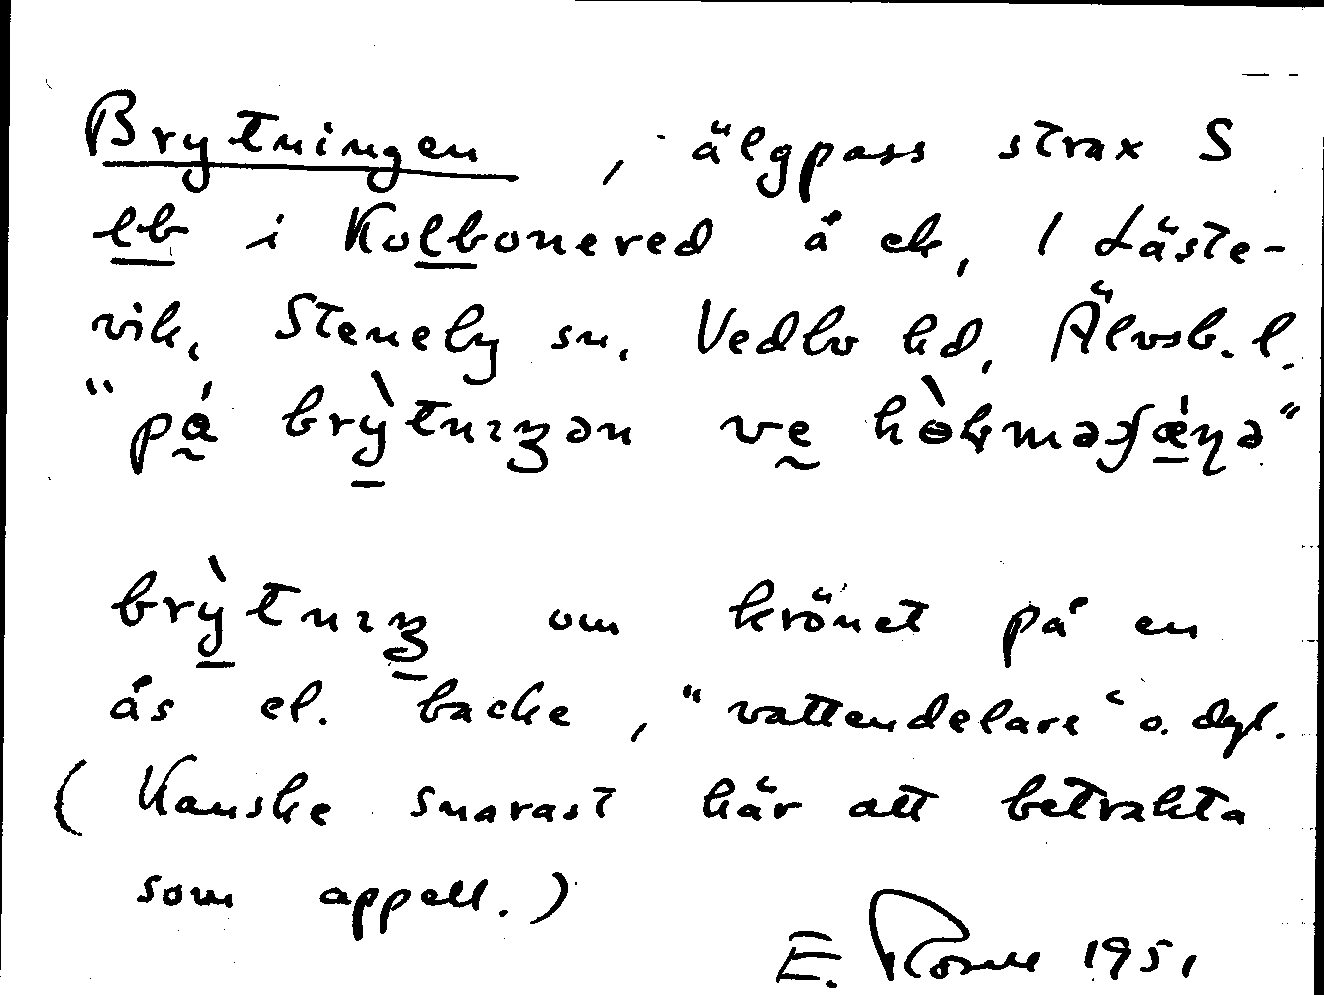 Brytningen, älgpass strax S
lb i Kolbonered å ek, 1 Låste-
vik, Steneby sn. Vedbo hd, Älvsb. l.
"på brỳtnɪŋən ve
brỳtnɪŋ om krönet på en
ås el. backe, "vattendelare" o. dyl.
(Kanske snarast här att betrakta
som appell.)
E. 1951